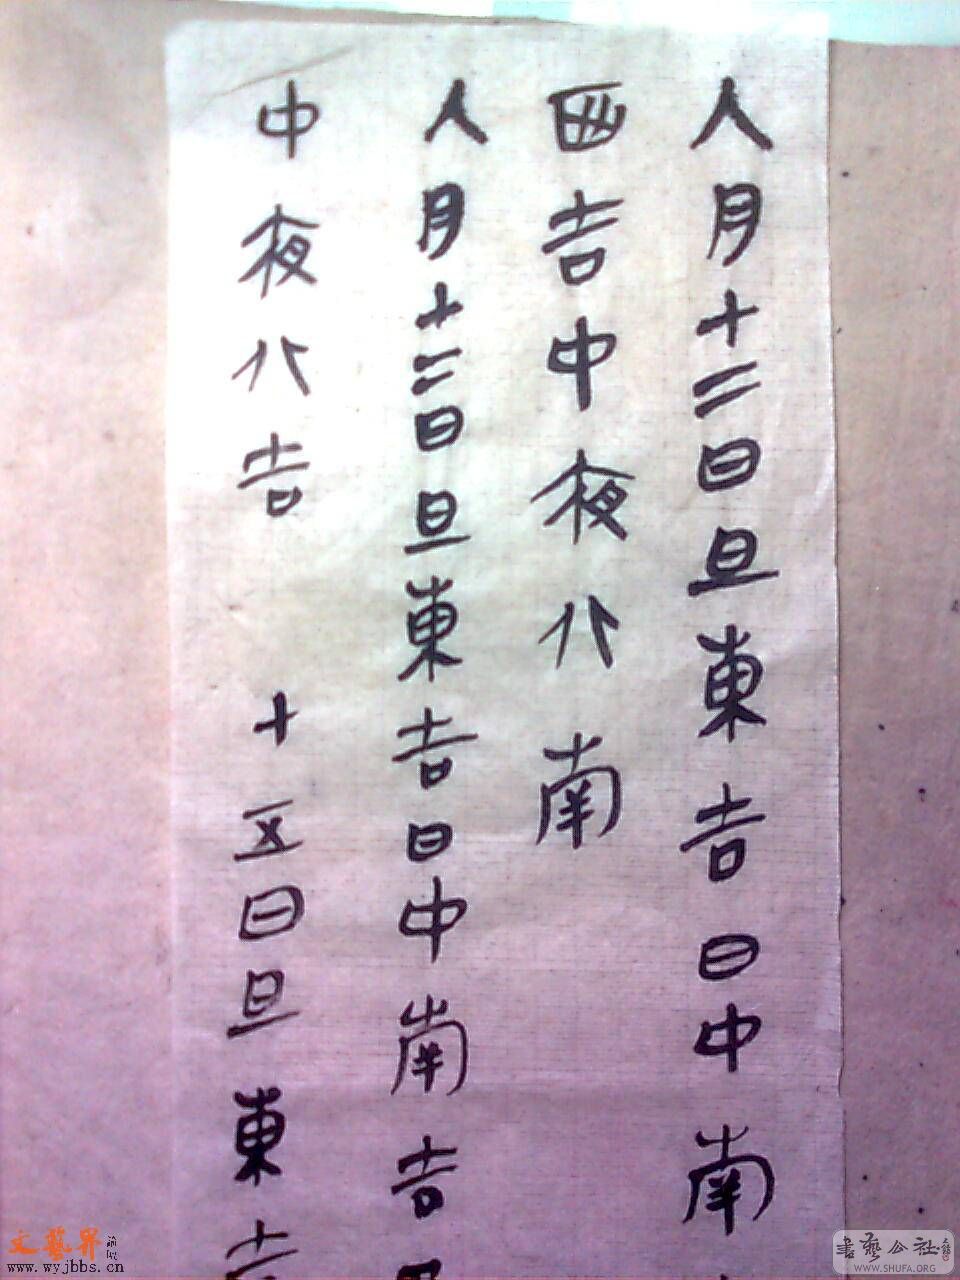 人月十二日旦東吉日中南
西吉中夜北南
人月十三日旦東吉日中南吉
中夜北吉 十五日旦東吉
文藝界論壇
www.wyjbbs.cn
書藝公社
WWW.SHUFA.ORG